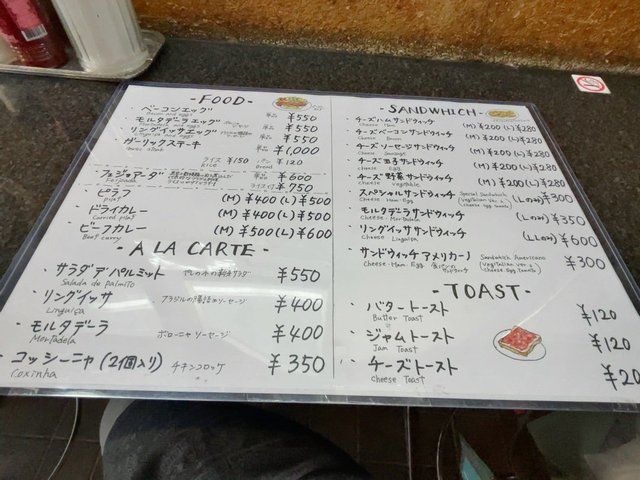 - FOOD -
・ベーコンエッグ 単品 ¥550
Bacon and eggs
・モルタデラエッグ 単品 ¥550
・リングイッサエッグ 単品 ¥550
Linguiça and eggs
・ガーリックステーキ 単品 ¥1,000
ライス ¥150 パン ¥120
Rice Bread
・フェジョアーダ 単品 ¥600
Feijoada ライス付 ¥750
・ピラフ (M) ¥400 (L) ¥500
pilaf
・ドライカレー (M) ¥400 (L) ¥500
Curried pilaf
・ビーフカレー (M) ¥500 (L) ¥600
Beef curry
- A LA CARTE -
・サラダ デ パルミット やしの木の新芽サラダ ¥550
Salada de palmito
・リングイッサ ブラジルの腸詰めソーセージ ¥400
Linguiça
・モルタデーラ ボローニャソーセージ ¥400
Mortadela
・コッシーニャ (2個入り) チキンコロッケ ¥350
Coxinha
- SANDWHICH -
・チーズハムサンドウィッチ (M) ¥200 (L) ¥280
Cheese Ham
・チーズベーコンサンドウィッチ (M) ¥200 (L) ¥280
Cheese Bacon
・チーズソーセージサンドウィッチ (M) ¥200 (L) ¥280
Cheese Sausage
・チーズ玉子サンドウィッチ (M) ¥200 (L) ¥280
Cheese Egg
・チーズ野菜サンドウィッチ (M) ¥200 (L) ¥280
Cheese Vegetable
・スペシャルサンドウィッチ Special Sandwich (Lのみ) ¥300
Cheese Ham Egg (Vegetalian Ver. Cheese Egg Tomato)
・モルタデラサンドウィッチ (Lのみ) ¥350
Cheese Mortadela
・リングイッササンドウィッチ (LLのみ) ¥600
Cheese Linguiça
・サンドウィッチ アメリカーノ Sandwich Americano ¥300
Cheese Ham Egg (Vegetalian Ver. Cheese Egg Tomato)
- TOAST -
・バタートースト ¥120
Butter Toast
・ジャムトースト ¥120
Jam Toast
・チーズトースト ¥20
Cheese Toast